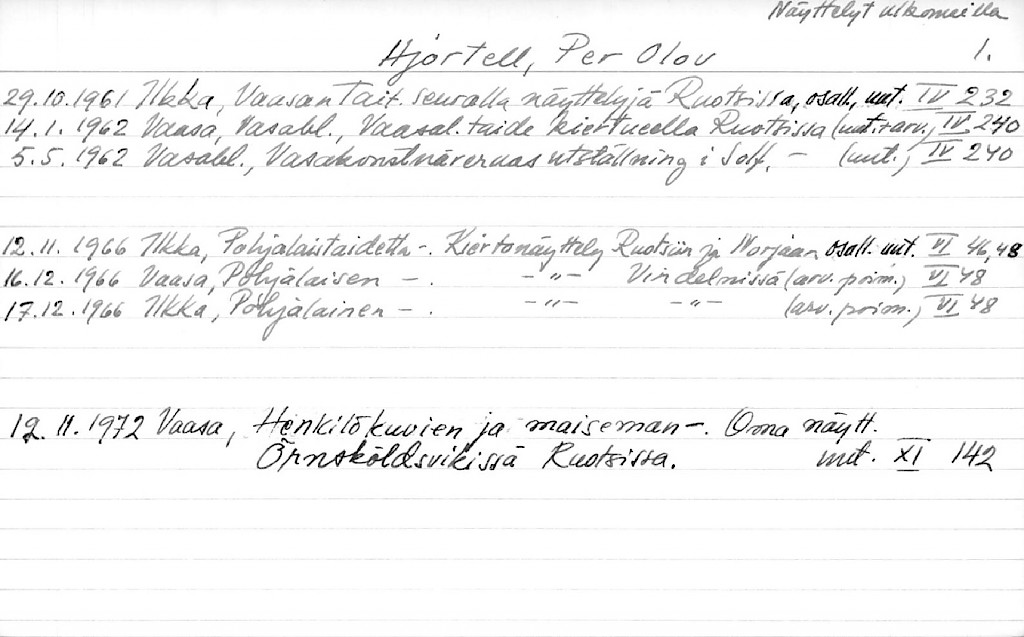 Näyttelyt ulkomailla
Hjortell, Per Olov 1.
29.10.1961 Ilkka, Vaasan Tait. seuralla näyttelyjä Ruotsissa, osall. uut. IV 232
14.1.1962 Vaasa, Vasabl., Vaasal. taide kiertueella Ruotsissa (uut. + arv.) IV 240
5.5.1962 Vasabl., Vasakonstnärernas utställning i Solf. - (uut.) IV 240
12.11.1966 Ilkka, Pohjalaistaidetta -. Kiertonäyttely Ruotsiin ja Norjaan osall. uut. VI 46,48
16.12.1966 Vaasa, Pohjalaisen -. -"- Vindelnissä (arv. poim.) VI 48
17.12.1966 Ilkka, Pohjalainen -. -"- -"- (arv. poim.) VI 48
12.11.1972 Vaasa, Henkilökuvien ja maiseman -. Oma näytt.
Örnsköldsvikissä Ruotsissa. uut. XI 142